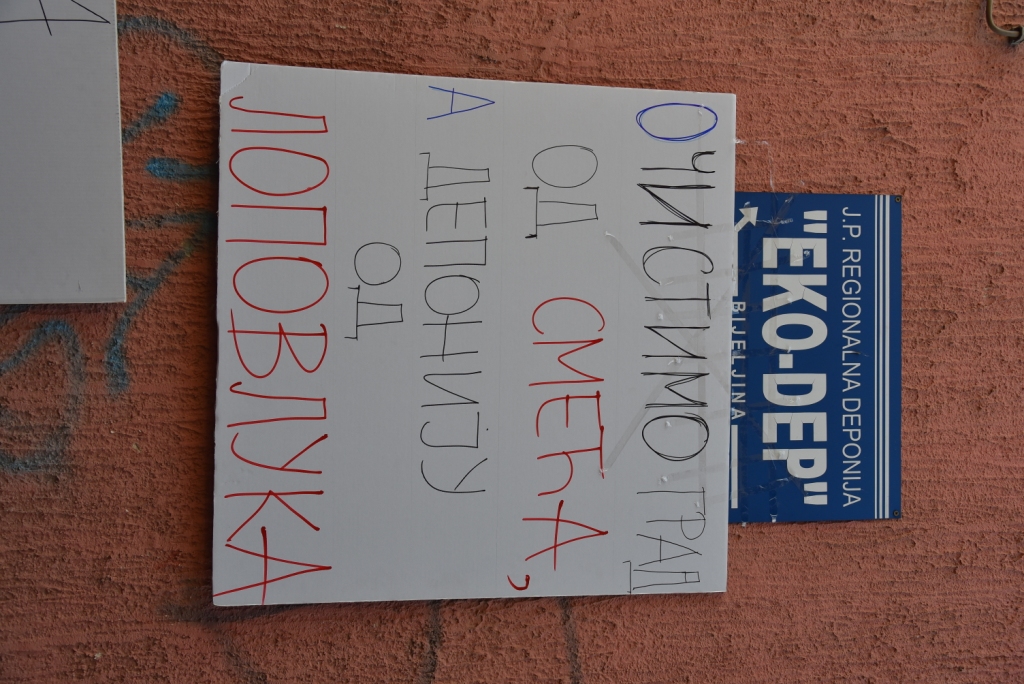 J.P. REGIONALNA DEPONIJA
"EKO-DEP"
BIJELJINA
ОЧИСТИМО ГРАД
ОД СМЕЋА,
А ДЕПОНИЈУ
ОД
ЛОПОВЛУКА